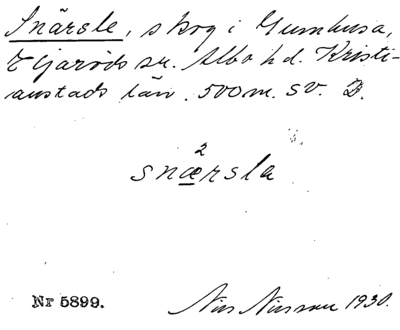 Snärsle, skog i Gumhusa,
Eljaröds sn. Albo hd. Kristi-
anstads län. 500 m. SV. D.
2
snærsla
Nr 5899. Nils Nilsson 1930.